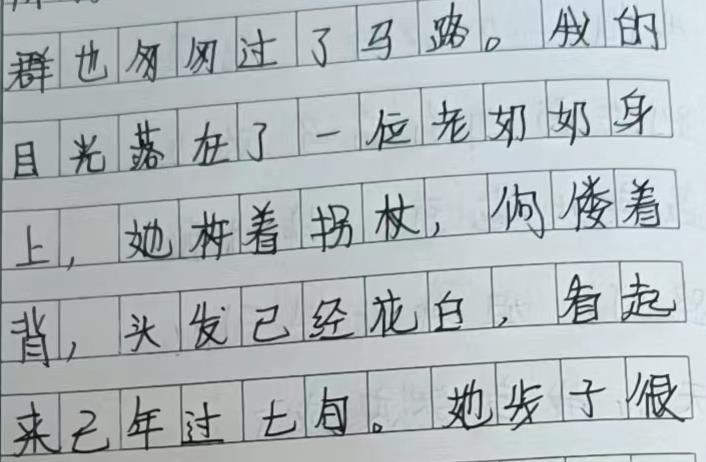 群也匆匆过了马路。我的
目光落在了一位老奶奶身
上，她拄着拐杖，佝偻着
背，头发已经花白，看起
来已年过七旬。她步子很